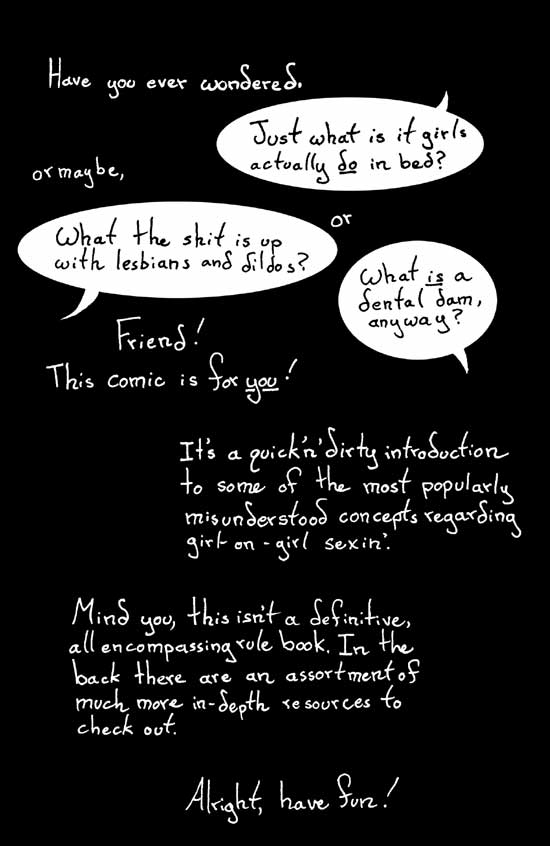 Have you ever wondered.
Just what is it girls
actually do in bed?
or maybe,
or
What the shit is up
with lesbians and dildos?
What is a
dental dam,
anyway?
Friend!
This comic is for you!
It's a quick'n'dirty introduction
to some of the most popularly
misunderstood concepts regarding
girl-on-girl sexin'.
Mind you, this isn't a definitive,
all encompassing rule book. In the
back there are an assortment of
much more in-depth resources to
check out.
Alright, have fun!